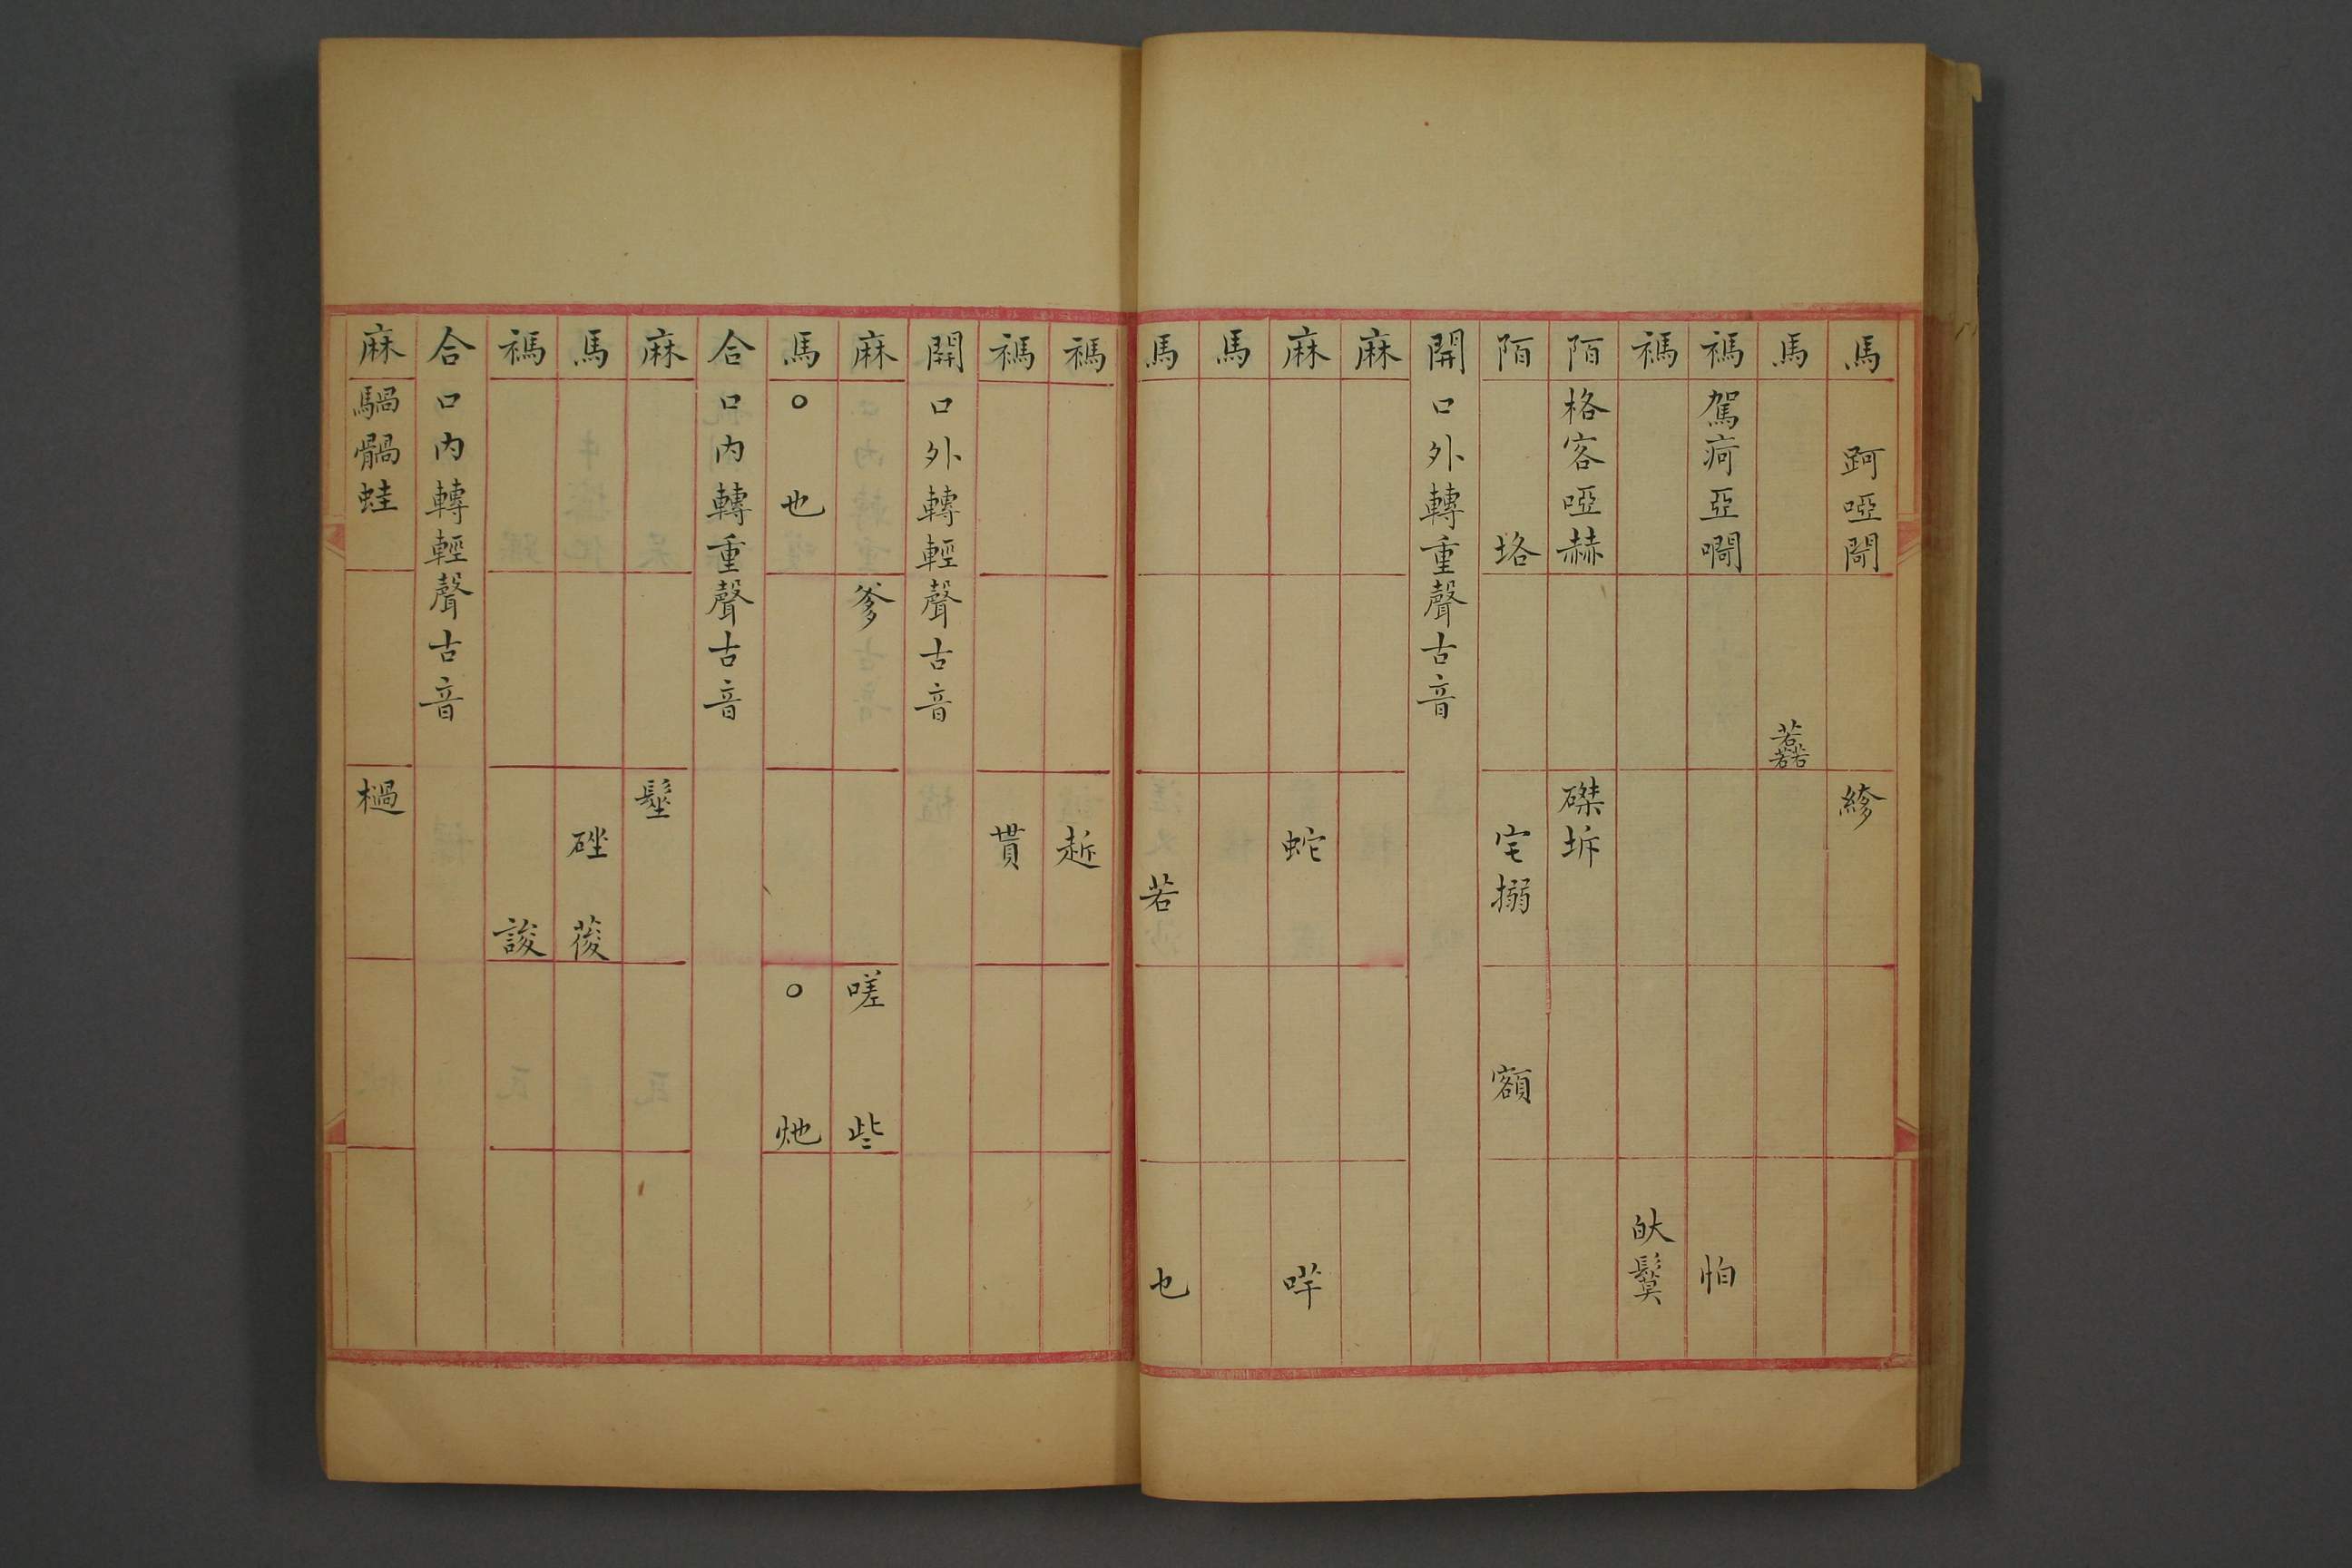 馬 跒啞閜 絳
馬
禡 駕疴亞嗬 怕
禡
陌 格客啞赫 磔坼
陌 垎 宅搦 額
開口外轉重聲古音
麻
麻 蛇 哶
馬
馬 若 乜
禡 䞣
禡 貰
開口外轉輕聲古音
麻 爹 嗟 些
馬 ○ 也 ○ 灺
合口內轉重聲古音
麻 髽
馬 䂳 葰
禡 誜
合口內轉輕聲古音
麻 騧䯞蛙 檛